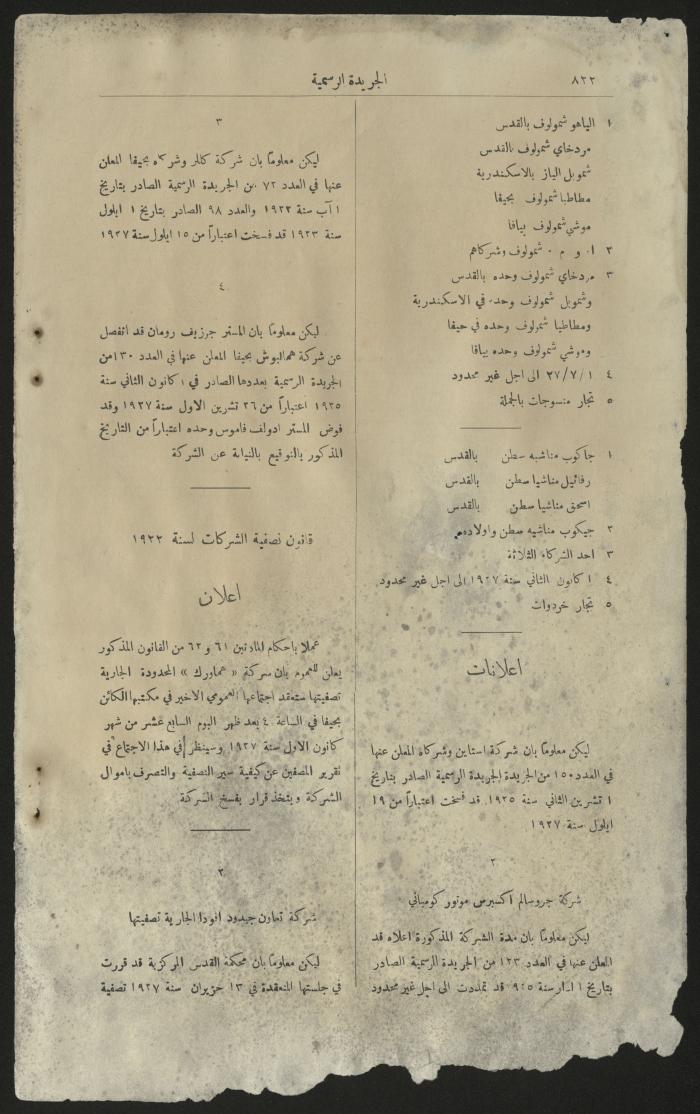 ٨٢٢
الجريدة الرسمية
١ الياهو شمولوف بالقدس
مردخاي شمولوف بالقدس
شمويل الياز بالاسكندرية
مطاطيا شمولوف بحيفا
موشي شمولوف بيافا
٢ ا. و م. شمولوف وشركاهم
٣ مردخاي شمولوف وحده بالقدس
وشمويل شمولوف وحده في الاسكندرية
ومطاطيا شمولوف وحده في حيفا
وموشي شمولوف وحده بيافا
٤ ٢٧/٧/١ الى اجل غير محدود
٥ تجار منسوجات بالجملة
١ جاكوب مناشيه سطن بالقدس
رفائيل مناشيا سطن بالقدس
اسحق مناشيا سطن بالقدس
٢ جيكوب مناشيه سطن واولاده
٣ احد الشركاء الثلاثة
٤ ١ كانون الثاني سنة ١٩٢٧ الى اجل غير محدود
٥ تجار خردوات
اعلانات
ليكن معلومًا بان شركة استاين وشركاه المعلن عنها
في العدد ١٥٠ من الجريدة الجريدة الرسمية الصادر بتاريخ
١ تشرين الثاني سنة ١٩٢٥ قد فسخت اعتباراً من ١٩
ايلول سنة ١٩٢٧
٢
شركة جروسالم اكسبرس موتور كومباني
ليكن معلومًا بان مدة الشركة المذكورة اعلاه قد
المعلن عنها في العدد ١٢٣ من الجريدة الرسمية الصادر
بتاريخ ١ اذار سنة ٩٢٥ قد تمددت الى اجل غير محدود
٣
ليكن معلومًا بان شركة كلر وشركاه بحيفا المعلن
عنها في العدد ٧٢ من الجريدة الرسمية الصادر بتاريخ
١ آب سنة ١٩٢٢ والعدد ٩٨ الصادر بتاريخ ١ ايلول
سنة ١٩٢٣ قد فسخت اعتباراً من ١٥ ايلول سنة ١٩٢٧
٤
ليكن معلومًا بان المستر جوزيف رومان قد انفصل
عن شركة همالبوش بحيفا المعلن عنها في العدد ١٣٠ من
الجريدة الرسمية بعددها الصادر في ١ كانون الثاني سنة
١٩٢٥ اعتباراً من ٢٦ تشرين الاول سنة ١٩٢٧ وقد
فوض المستر ادولف فاموس وحده اعتباراً من التاريخ
المذكور بالتوقيع بالنيابة عن الشركة
قانون تصفية الشركات لسنة ١٩٢٢
اعلان
عملا باحكام المادتين ٦١ و ٦٢ من القانون المذكور
يعلن للعموم بان شركة «عماورك» المحدودة الجارية
تصفيتها ستعقد اجتماعها العمومي الاخير في مكتبها الكائن
بحيفا في الساعة ٤ بعد ظهر اليوم السابع عشر من شهر
كانون الاول سنة ١٩٢٧ وسينظر في هذا الاجتماع في
تقرير المصفين عن كيفية سير التصفية والتصرف باموال
الشركة ويتخذ قرار بفسخ الشركة
٢
شركة تعاون جيدود افودا الجارية تصفيتها
ليكن معلومًا بان محكمة القدس المركزية قد قررت
في جلستها المنعقدة في ١٣ حزيران سنة ١٩٢٧ تصفية